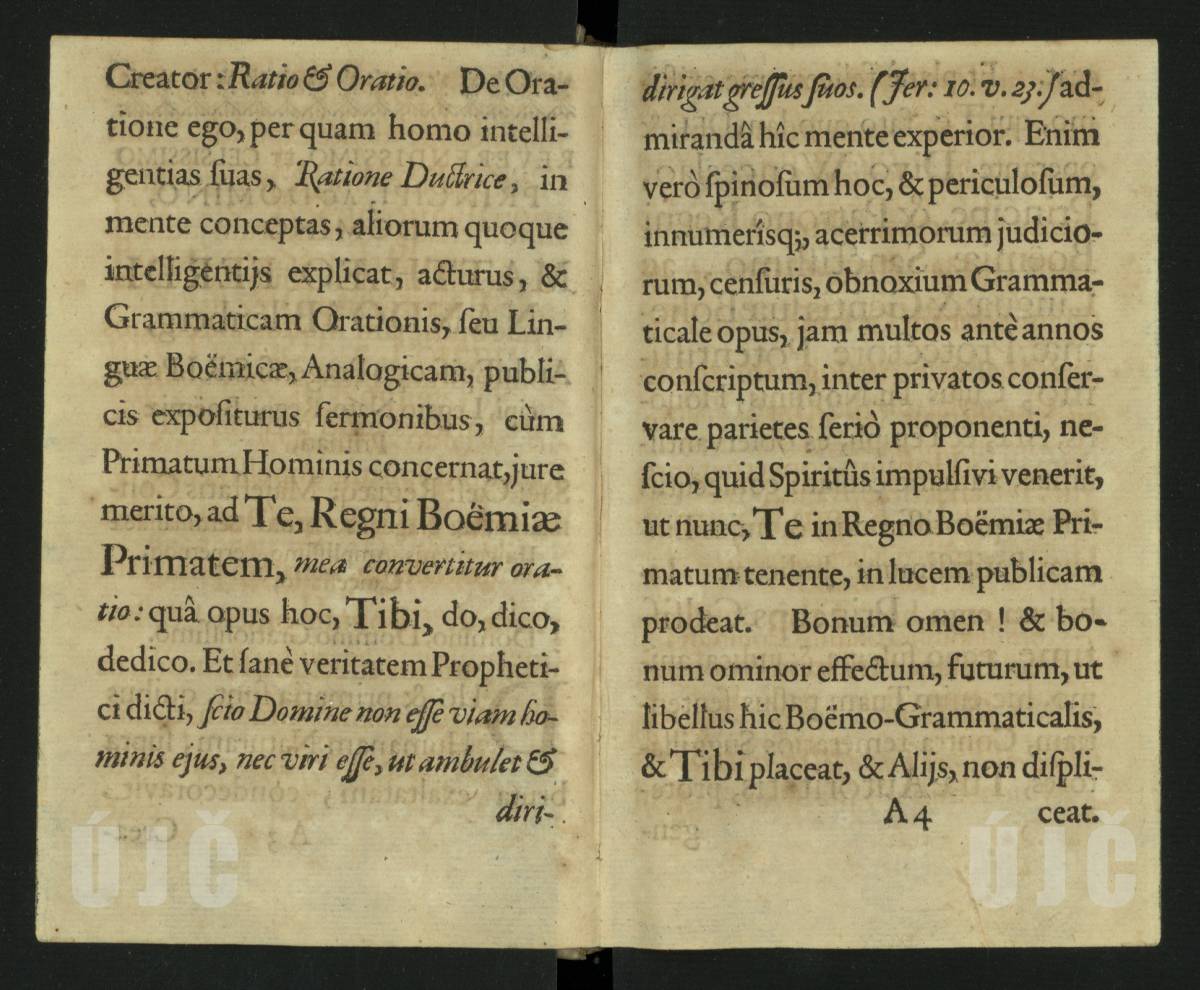 Creator: Ratio & Oratio. De Ora-
tione ego, per quam homo intelli-
gentias ſuas, Ratione Ductrice, in
mente conceptas, aliorum quoque
intelligentijs explicat, acturus, &
Grammaticam Orationis, ſeu Lin-
guæ Boëmicæ, Analogicam, publi-
cis expoſiturus ſermonibus, cùm
Primatum Hominis concernat, jure
merito, ad Te, Regni Boëmiæ
Primatem, mea convertitur ora-
tio: quâ opus hoc, Tibi, do, dico,
dedico. Et ſanè veritatem Propheti-
ci dicti, ſcio Domine non eſſe viam ho-
minis ejus, nec viri eſſe, ut ambulet &
diri-
dirigat greſſus ſuos. (Jer: 10. v. 23.) ad-
mirandâ hîc mente experior. Enim
verò ſpinoſum hoc, & periculoſum,
innumerîsq;, acerrimorum judicio-
rum, cenſuris, obnoxium Gramma-
ticale opus, jam multos antè annos
conſcriptum, inter privatos conſer-
vare parietes ſeriò proponenti, ne-
ſcio, quid Spiritûs impulſivi venerit,
ut nunc, Te in Regno Boëmiæ Pri-
matum tenente, in lucem publicam
prodeat. Bonum omen ! & bo-
num ominor effectum, futurum, ut
libellus hic Boëmo-Grammaticalis,
& Tibi placeat, & Alijs, non diſpli-
A 4 ceat.
ÚJČ ÚJČ